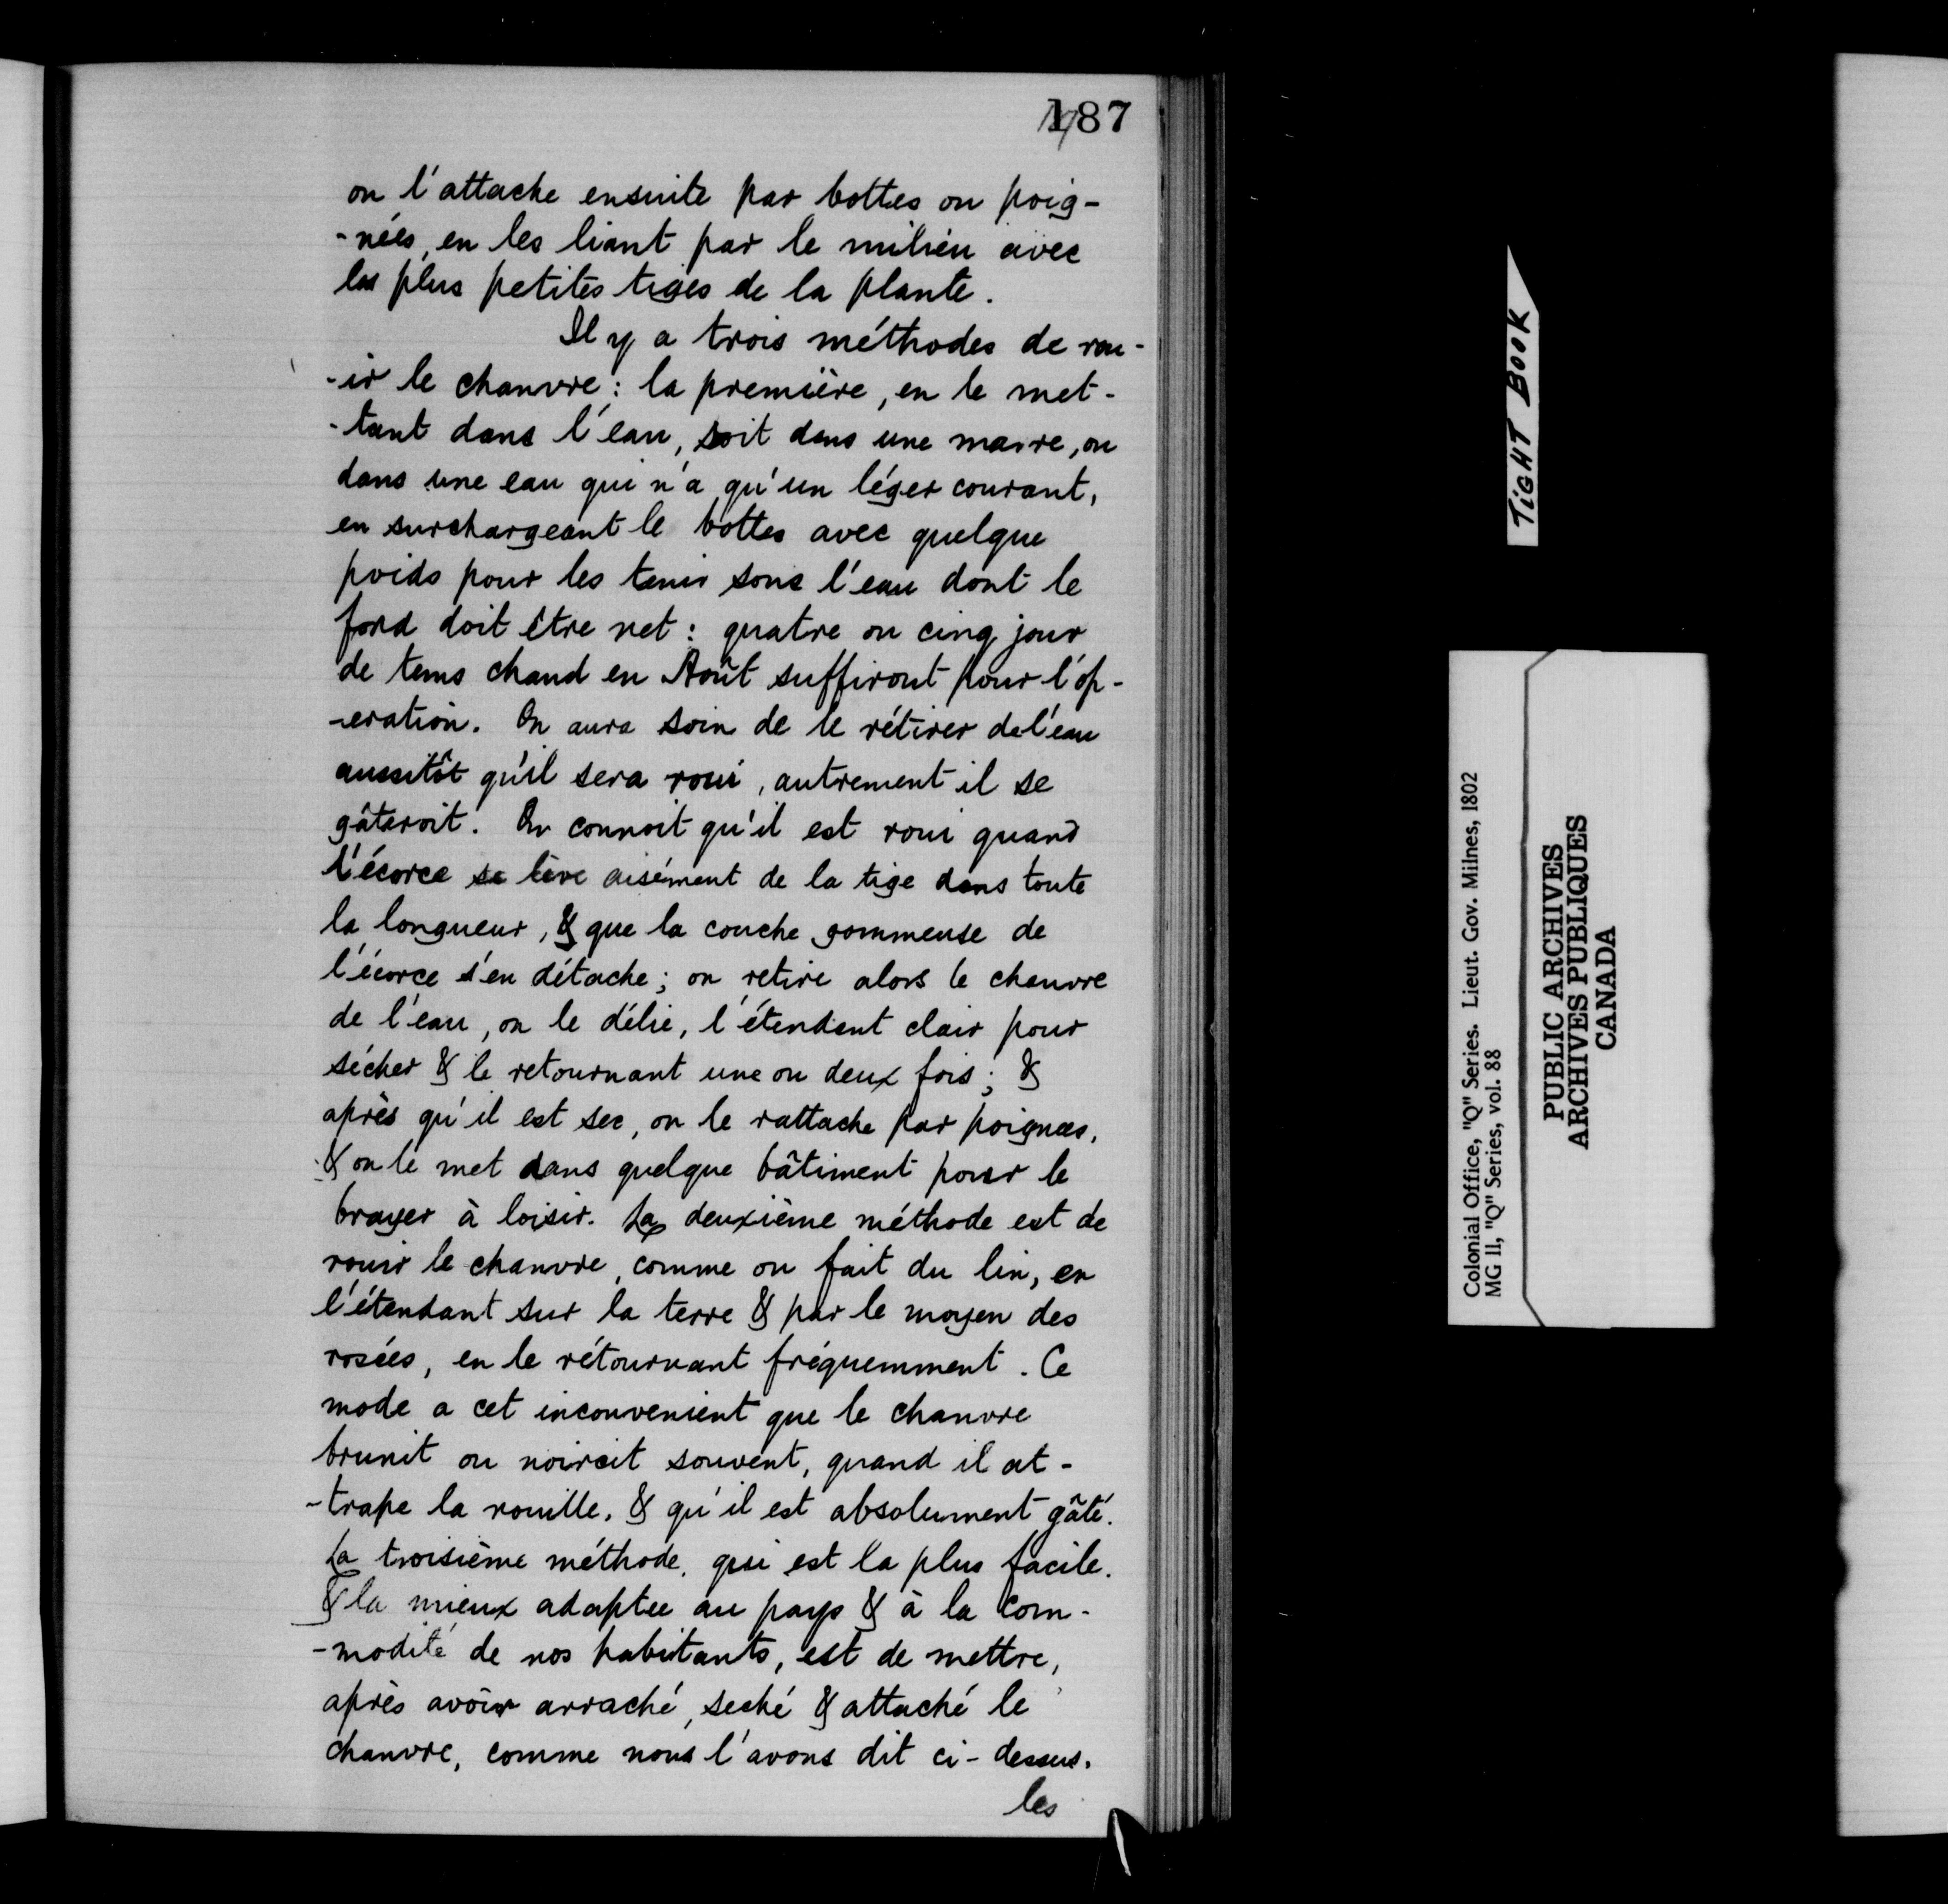 187
on l'attache ensuite par bottes ou poig-
-nées, en les liant par le milieu avec
les plus petites tiges de la plante.
Il y a trois méthodes de rou-
-ir le chanvre : la première, en le met-
-tant dans l'eau, soit dans une marre, ou
dans une eau qui n'a qu'un léger courant,
en surchargeant le bottes avec quelque
poids pour les tenir sous l'eau dont le
fond doit être net : quatre ou cinq jour
de tems chaud en Août suffiront pour l'op-
-eration. On aura soin de le rétirer de l'eau
aussitôt qu'il sera roui, autrement il se
gâteroit. On connoit qu'il est roui quand
l'écorce se lève aisément de la tige dans toute
la longueur, & que la couche gommeuse de
l'écorce s'en détache ; on retire alors le chanvre
de l'eau, on le délie, l'étendant clair pour
sécher & le retournant une ou deux fois ; &
après qu'il est sec, on le rattache par poignees,
& on le met dans quelque bâtiment pour le
brayer à loisir. La deuxième méthode est de
rouir le chanvre, comme on fait du lin, en
l'étendant sur la terre & par le moyen des
rosées, en le rétournant fréquemment. Ce
mode a cet inconvenient que le chanvre
brunit ou noircit souvent, quand il at-
-trape la rouille, & qu'il est absolument gâté.
La troisième méthode, qui est la plus facile.
& la mieux adaptee au pays & à la com-
-modité de nos habitants, est de mettre,
après avoir arraché, seché & attaché le
chanvre, comme nous l'avons dit ci-dessus.
les
TIGHT BOOK
Colonial Office, "Q" Series. Lieut. Gov. Milnes, 1802
MG 11, "Q" Series, vol. 88
PUBLIC ARCHIVES
ARCHIVES PUBLIQUES
CANADA